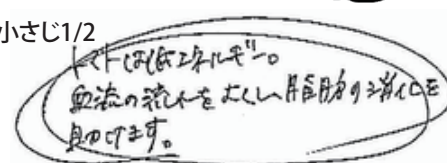 小さじ1/2
トマトは低エネルギー。
血流の流れをよくし、脂肪の消化を
助けます。